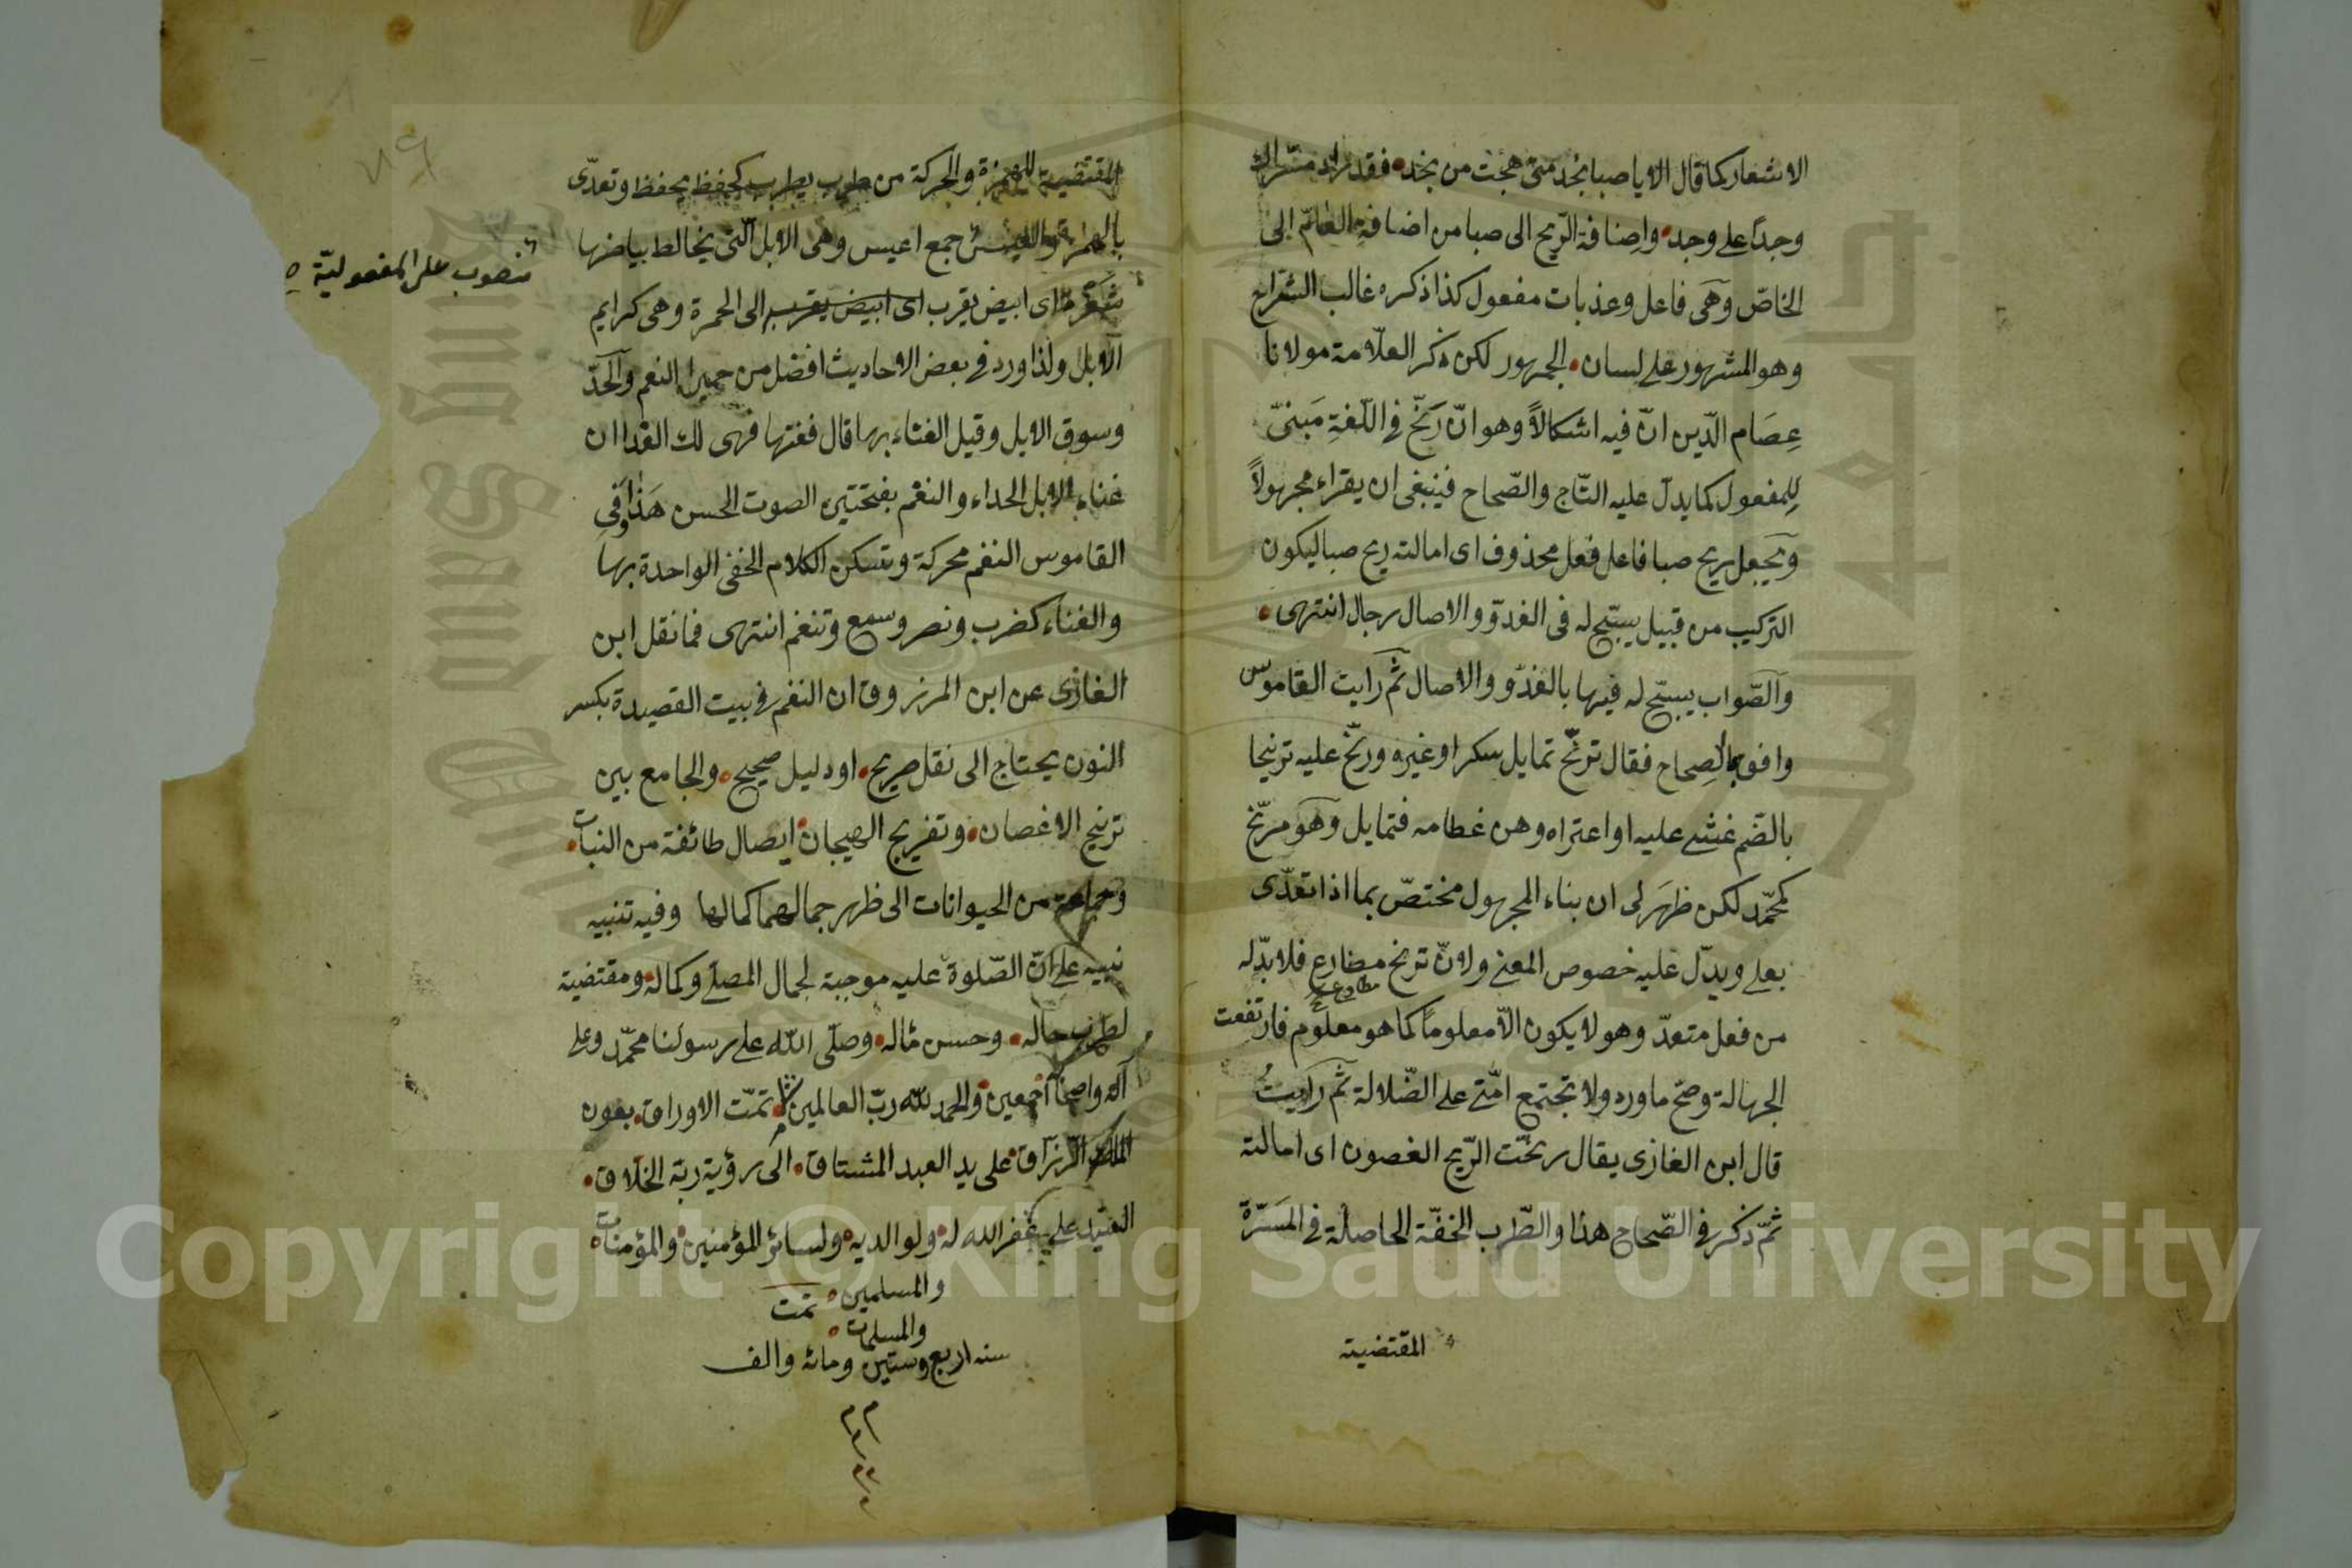 الاشعار كما قال الا يا صبا نجد متى هجت من نجد فقد زاد مسراك
وجدًا على وجد واضافة الرّيح الى صبا من اضافة العامّ الى
الخاصّ وهى فاعل وعذبات مفعول كذا ذكره غالب الشراح
وهو المشهور على لسان الجمهور لكن ذكر العلّامة مولانا
عِصَام الدّين انّ فيه اشكالاً وهو انّ رَنّح فى اللّغةِ مَبنىّ
لِلمفعول كما يدلّ عليه التّاج والصّحاح فينبغى ان يقراء مجهولاً
ويجعل ريح صبا فاعل فعل محذوف اى امالته ريح صبا ليكون
التركيب من قبيل يسبّح له فى الغدوّ والاصال رجال انتهى
والصّواب يسبّح له فيها بالغدّو والاصال ثم رايت القاموس
وافق الصِحاح فقال ترنّح تمايل سكرا وغيره ورنّح عليه ترنيحا
بالضّم غشى عليه او اعتراه وهن عظامه فتمايل وهو مرنّح
كمحمّد لكن ظهَر لى ان بناء المجهول مختصّ بما اذا تعدّى
بعلى ويدلّ عليه خصوص المعنى ولانّ ترنح مضارع فلا بدّ له
مطاوع صح
من فعل متعدّ وهو لا يكون الاّ معلوماً كما هو معلوم فارتفعت
الجهالة وصحّ ما ورد ولا تجتمع امّتى على الضّلالة ثم رايتُ
قال ابن الغازى يقال رنحّت الرّيح الغصون اى امالته
ثمّ ذكر فى الصّحاح هذا والطّرب الخفّة الحاصلة فى المَسَرّة
المقتضية
المقتضية للهزة والحركة من طرب يطرب كحفظ يحفظ وتعدّى
بالهمزة والعيس جمع اعيس وهى الابل الّتى يخالط بياضها
منصوب على المفعوليّة
شقرة اى ابيض يقرب اى ابيض يقرب الى الحمرة وهى كرايم
الابل ولذا ورد فى بعض الاحاديث افضل من حمير النعم والحدّ
وسوق الابل وقيل الغناء بها قال فغنها فهى لك الفدا ان
غناء الابل الحداء والنغم بفتحتين الصوت الحسن هَذا وفى
القاموس النغم محركة وتسكن الكلام الخفى الواحدة بها
والغناء كضرب ونصر وسمع وتنغم انتهى فما نقل ابن
الغازى عن ابن المرزوق ان النغم فى بيت القصيدة بكسر
النون يحتاج الى نقل صريح او دليل صحيح والجامع بين
ترنيح الاغصان وتفريج الهيجان ايصال طائفة من النبات
وجماعة من الحيوانات الى ظهر جمالهما كمالها وفيه تنبيه
نبيه على انّ الصّلوة عليه موجبة لجمال المصلّى وكماله ومقتضية
لطرب حاله وحسن مٰاله وصلّى الله على رسولنا محمّد وعلى
آله واصحٰابه اجمعين والحمد للّه ربّ العالمين تمّت الاوراق بعون
الملك الرّزاق على يد العبد المشتاق الى رؤية ربّه الخلّاق
على غفر الله له ولوالديه ولسائر المؤمنين والمؤمنات
والمسلمين تمت
والمسلمات
سنه اربع وستين ومائه والف